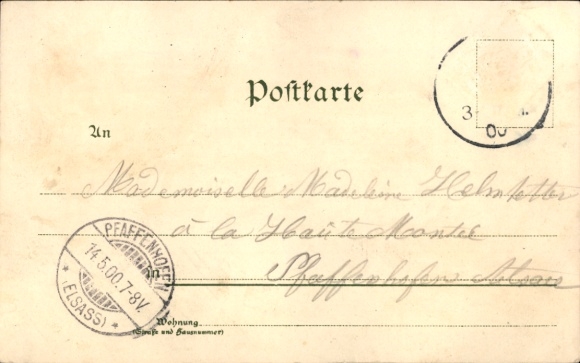 Postkarte
3
00
An
Mademoiselle Madeleine Helmstetter
à la Haute Montée
PFAFFENHOFEN
14.5.00.7-8V.
* (ELSASS) *
in
Pfaffenhofen Alsace
Wohnung
(Straße und Hausnummer)